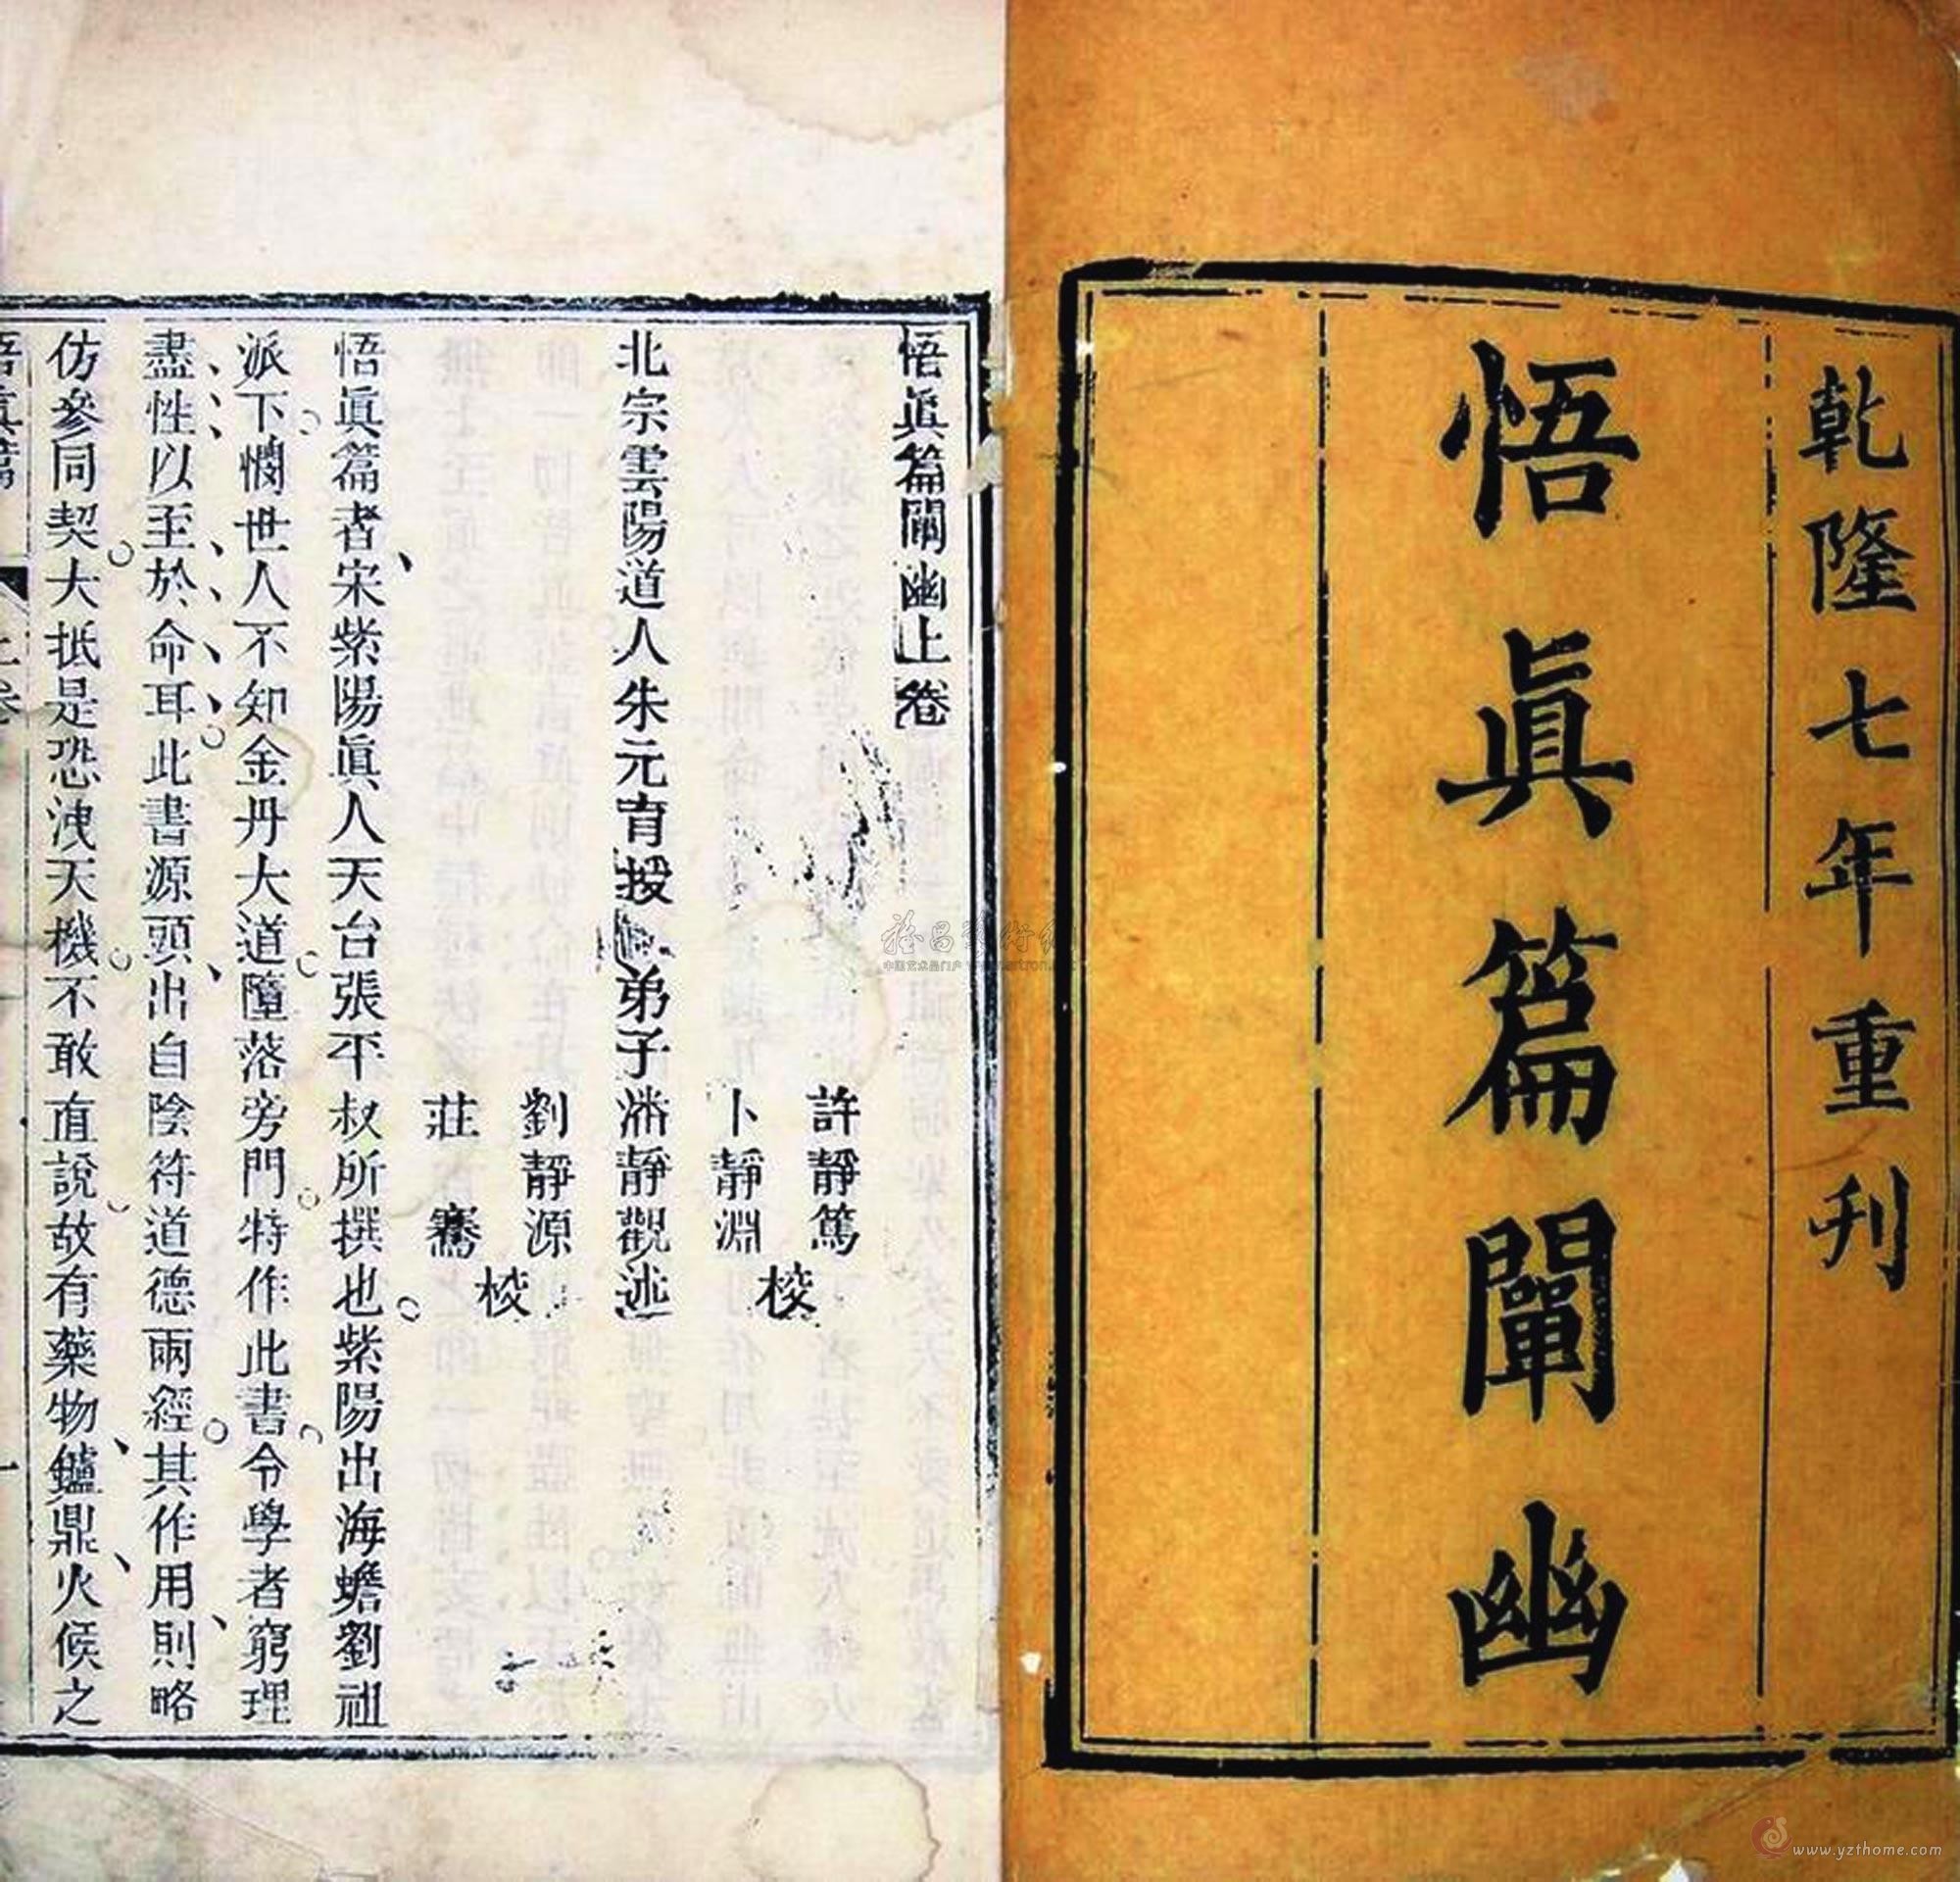 乾隆七年重刊
悟眞篇闡幽
悟眞篇闡幽上卷
許靜篤
卜靜淵
校
北宗雲陽道人朱元育授
弟子潘靜觀述
劉靜源
莊騫
校
悟眞篇者宋紫陽眞人天台張平叔所撰也紫陽出海蟾劉祖
派下憫世人不知金丹大道墮落旁門特作此書令學者窮理
盡性以至於命耳此書源頭出自陰符道德兩經其作用則略
仿參同契大抵是恐洩天機不敢直說故有藥物鑪鼎火候之
悟眞篇
上卷
一
www.yzthome.com